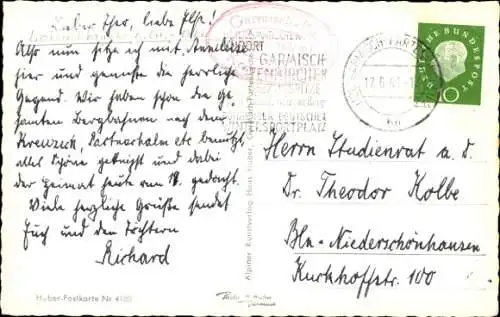 Lieber Theo, liebe Ilse!
Also nun sitze ich mit Annelies
hier und genieße die herrliche
Gegend. Wir haben schon die ge-
samten Bergbahnen nach dem
Kreuzeck, Partnachalm etc benutzt
alles Schöne geknipst und dabei
der Heimat heute vom gedacht.
Viele herzliche Grüße sendet
Euch und den Töchtern
Richard
Huber-Postkarte Nr 4100
Alpiner Kunstverlag Hans Huber, Garmisch-Partenkirchen
GARMISCH
PARTENKIRCHEN
DER DEUTSCHE
WINTERSPORTPLATZ
GARMISCH-PARTENKIRCHEN
17.6.61
DEUTSCHE BUNDESPOST
10
Herrn Studienrat a. D.
Dr. Theodor Kolbe
Bln-Niederschönhausen
Kurkhoffstr. 100